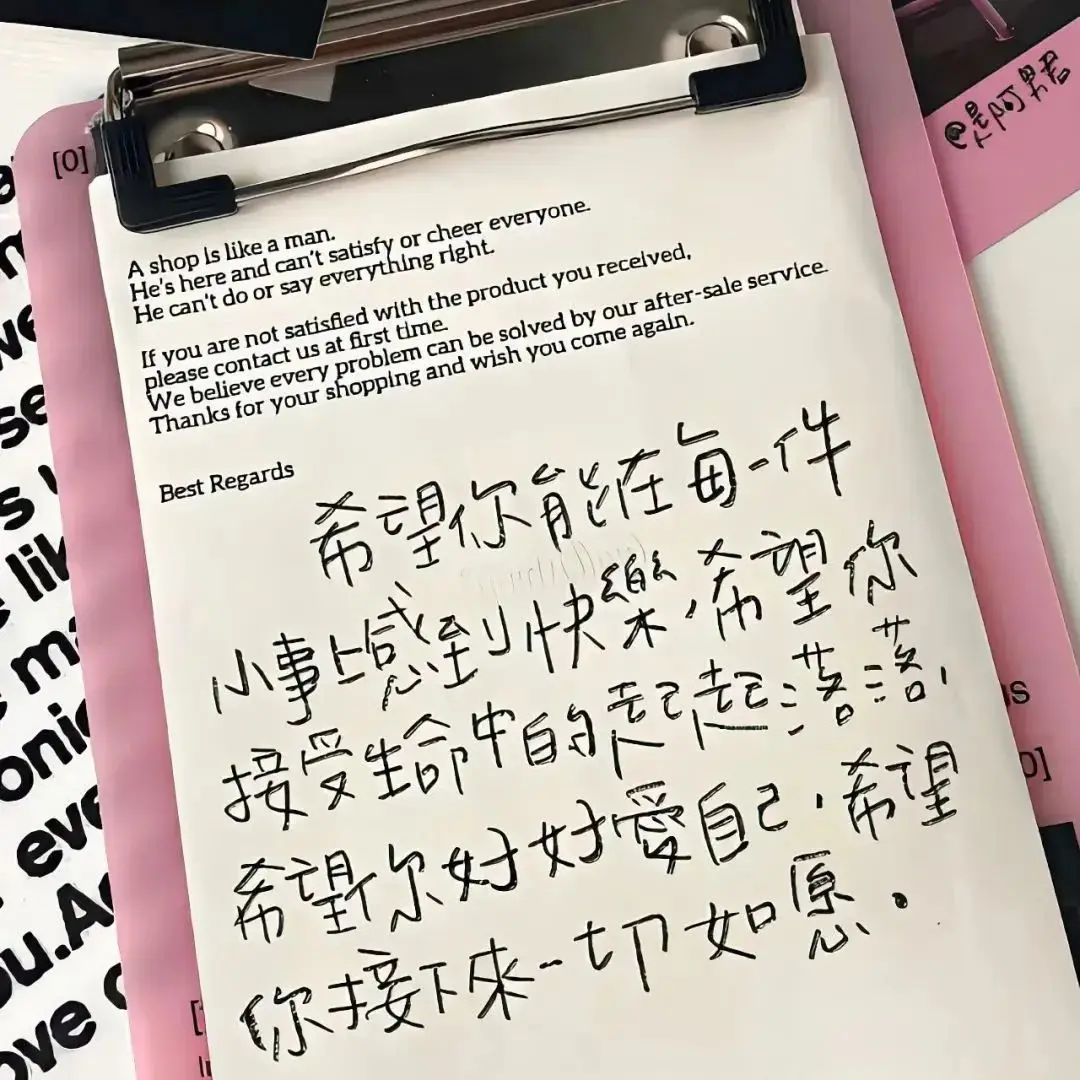 [0]
@是阿畀君
A shop is like a man.
He's here and can't satisfy or cheer everyone.
He can't do or say everything right.
If you are not satisfied with the product you received,
please contact us at first time.
We believe every problem can be solved by our after-sale service.
Thanks for your shopping and wish you come again.
Best Regards
希望你能在每一件
小事上感到快樂,希望你
接受生命中的起起落落,
希望你好好愛自己,希望
你接下來一切如愿.